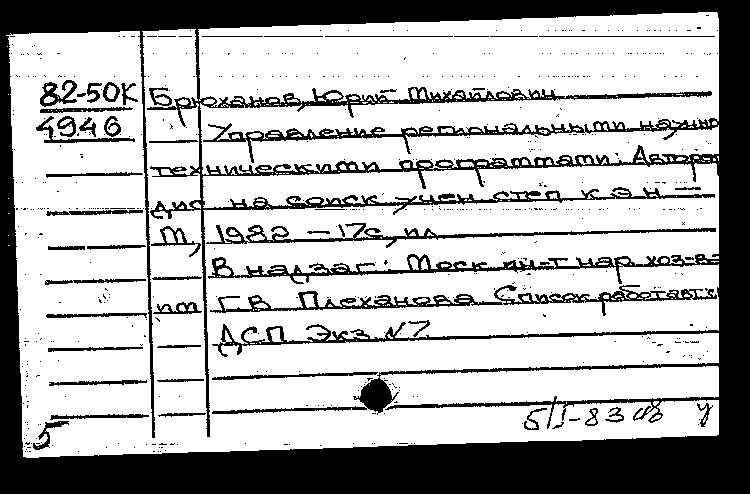 82-50К Брюханов, Юрий Михайлович
4946 Управление региональными научно
техническими программами: Автореф
дис на соиск учен степ к.э.н —
М, 1982 – 17с, ил
В надзаг: Моск ин-т нар хоз-ва
им Г.В Плеханова Список работ авт
ДСП Экз. N7.
5/I-83
5